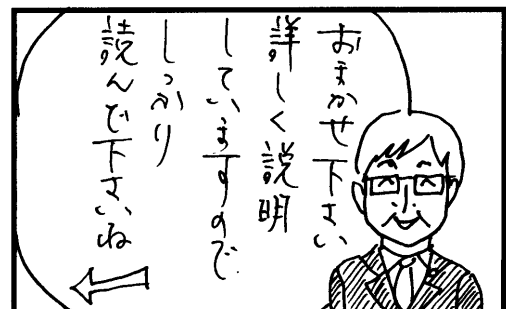 おまかせ下さい
詳しく説明
していますので
しっかり
読んで下さいね